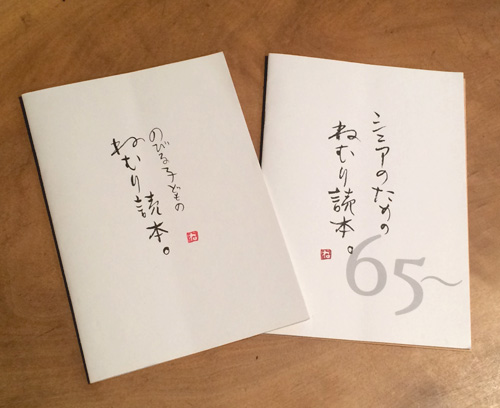 のびる子どもの
ねむり読本。
ね
シニアのための
ねむり読本。
ね
65~